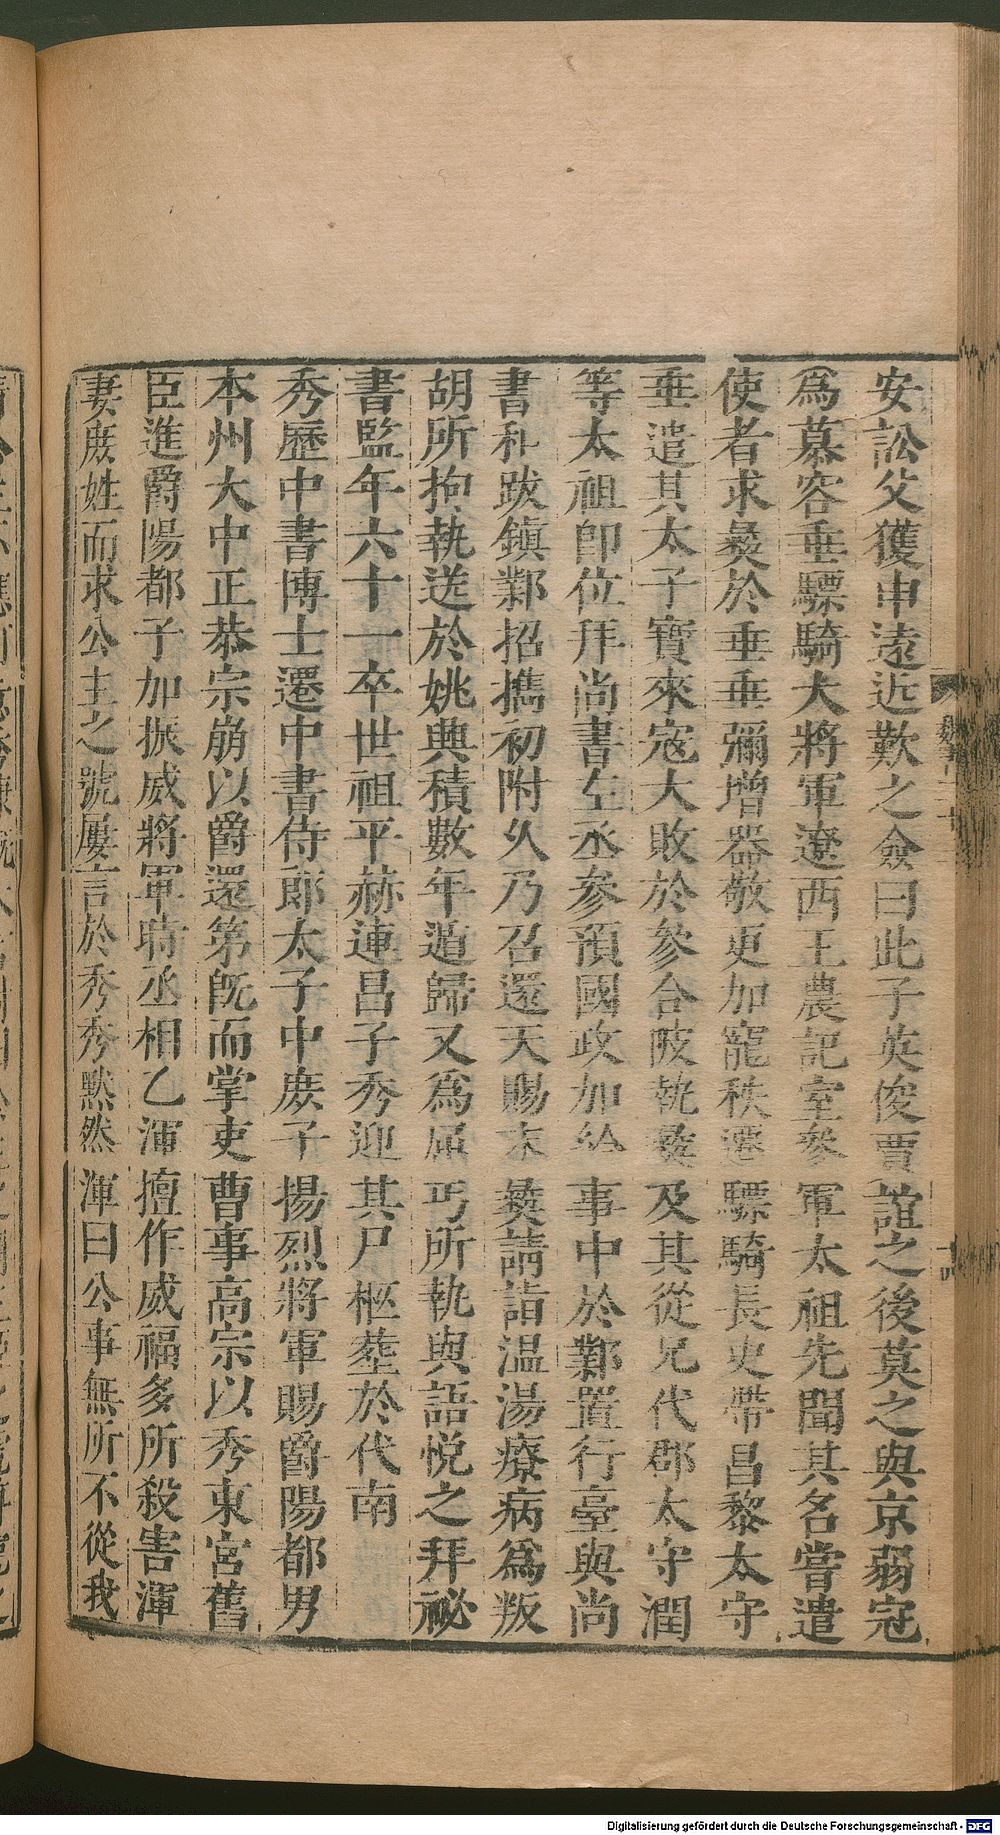 安訟父獲申遠近歎之僉曰此子英俊賈誼之後莫之與京弱冠
爲慕容垂驃騎大將軍遼西王農記室參軍太祖先聞其名嘗遣
使者求彝於垂垂彌增器敬更加寵秩遷驃騎長史帶昌黎太守
垂遣其太子寶來寇大敗於參合陂執彝及其從兄代郡太守潤
等太祖即位拜尚書左丞參預國政加給事中於鄴置行臺與尚
書和跋鎮鄴招攜初附久乃召還天賜末彝請詣温湯療病爲叛
胡所拘執送於姚興積數年遁歸又爲屈丐所執與語悅之拜祕
書監年六十一卒世祖平赫連昌子秀迎其尸柩葬於代南
秀歷中書博士遷中書侍郎太子中庶子揚烈將軍賜爵陽都男
本州大中正恭宗崩以爵還第旣而掌吏曹事高宗以秀東宮舊
臣進爵陽都子加振威將軍時丞相乙渾擅作威福多所殺害渾
妻庶姓而求公主之號屢言於秀秀默然渾曰公事無所不從我
Digitalisierung gefördert durch die Deutsche Forschungsgemeinschaft - DFG